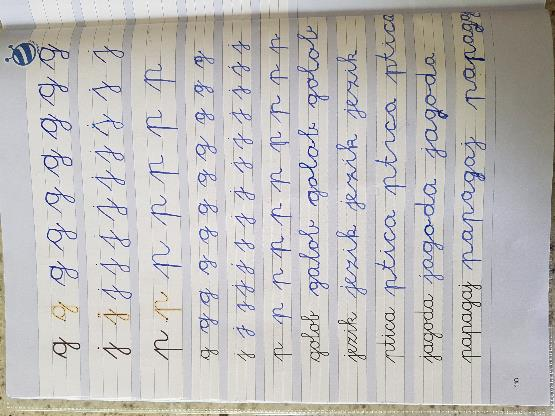 g g g g g g g g g
j j j j j j j j j j j
p p p p p p p
g g g g g g g g g g g
j j j j j j j j j j j j j
p p p p p p p p p p p
golob golob golob golob
jezik jezik jezik jezik
ptica ptica ptica ptica
jagoda jagoda jagoda jagoda
papagaj papagaj papagaj